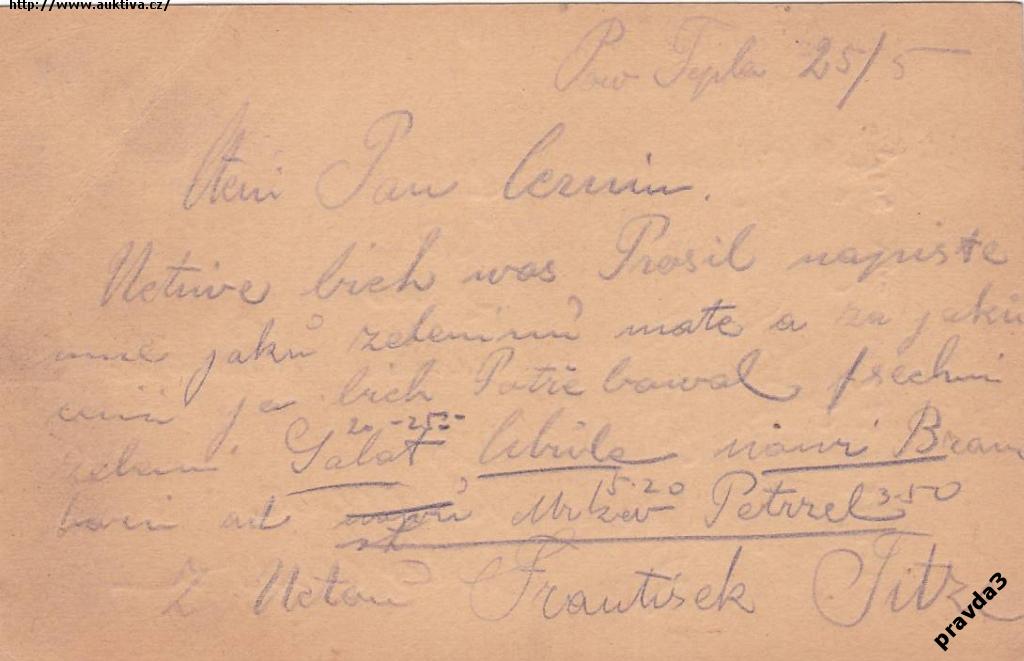 http://www.auktiva.cz/
Tepla 25/5
Pan Cermin.
Uctive bich was Prosil napiste
mne jaků zeleninů mate a za jaků
cenu ja bich Potřebowal fsechni
20-25-
zeleni Salat Cibule nowi Bram
5.20 3.50
bori od Mrkew Petrzel
Z Uctou František Titz
pravda3